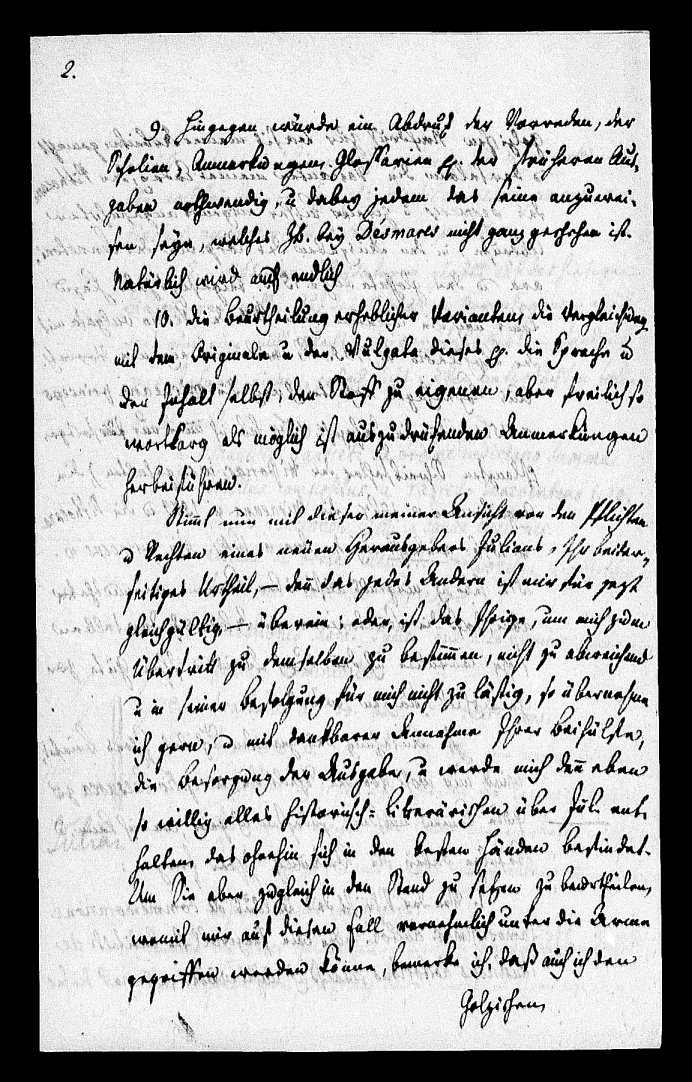 2.
9. Hingegen würde ein Abdruck der Vorreden, der
Scholien, Anmerkungen, Glossarien pp. der früheren Aus-
gaben nothwendig, u dabey jedem das seine anzuwei-
sen seyn, welches zb. bey Desmares nicht ganz geschehen ist.
Natürlich wird auch endlich
10. die Beurtheilung erheblicher Varianten, die Vergleichung
mit dem Originale u der Vulgata dieses pp. die Sprache u
der Inhalt selbst, den Stoff zu eigenen, aber freilich so
wortkarg als möglich ist auszudrükenden Anmerkungen
herbeiführen.
Stimmt nun mit dieser meiner Ansicht von den Pflichten
u Rechten eines neuen Herausgebers Julians, Ihr beider-
seitiges Urtheil, – denn das jedes Andern ist mir für jezt
gleichgültig – überein; oder, ist das Ihrige, um mich zum
Übertritt zu demselben zu bestimmen, nicht zu abweichend
u in seiner Befolgung für mich nicht zu lästig, so übernehme
ich gern, u mit dankbarer Annahme Ihrer Beihülfe,
die Besorgung der Ausgabe, u werde mich denn eben
so willig alles historisch-literärischen über Jul. ent-
halten, das ohnehin sich in den besten Händen befindet.
Um Sie aber zugleich in den Stand zu sezen zu beurtheilen,
womit mir auf diesen Fall vornehmlich unter die Arme
gegriffen werden könne, bemerke ich, daß auch ich den